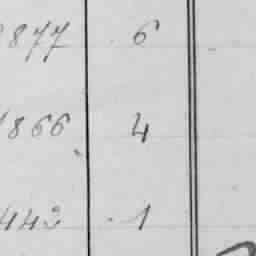 877 6
1866 4
443 1